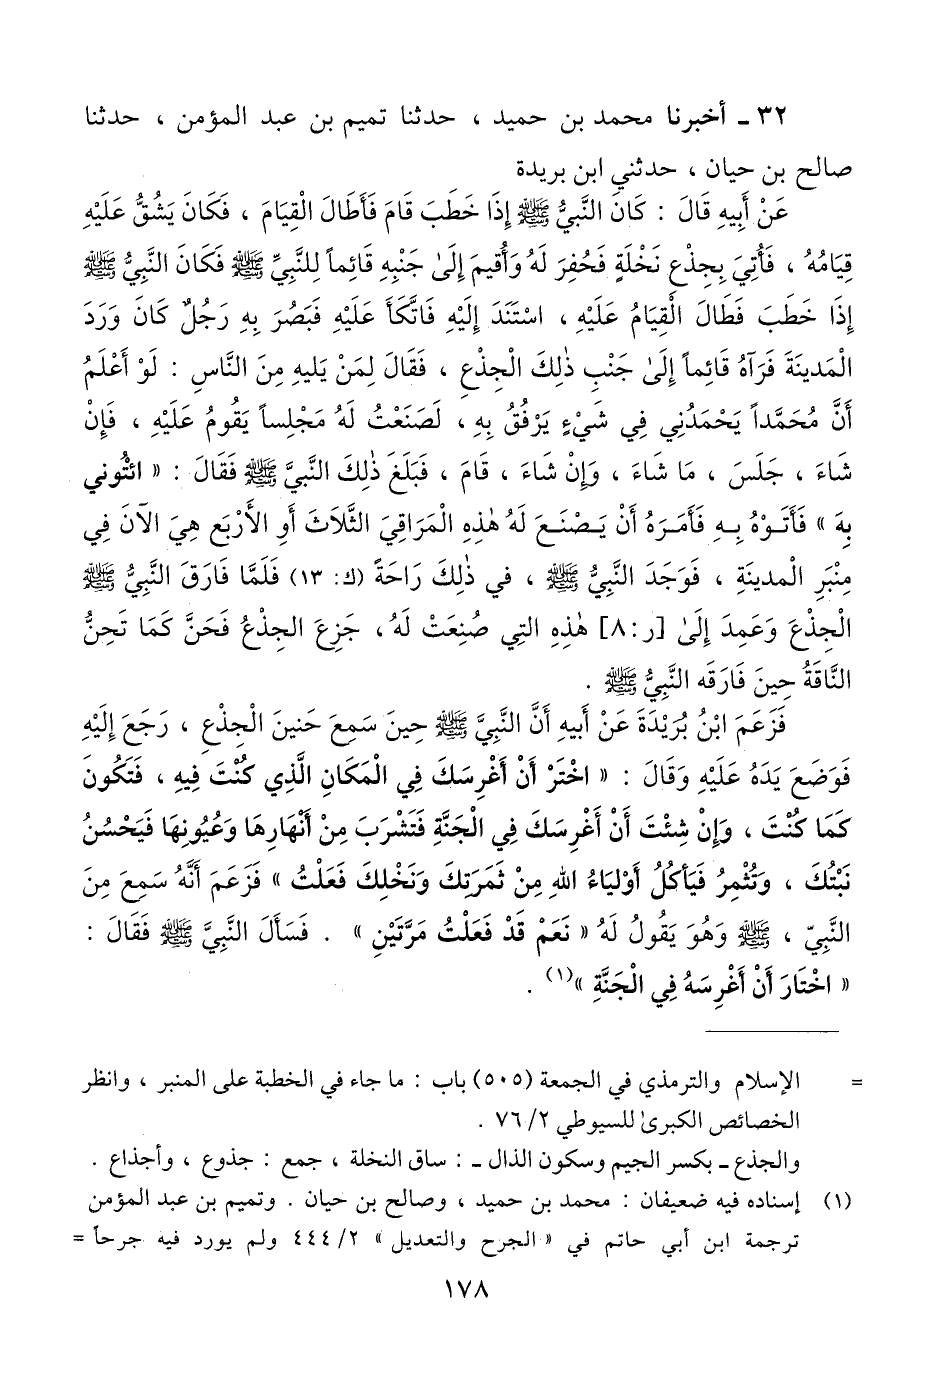 ٣٢ ـ أخبرنا محمد بن حميد ، حدثنا تميم بن عبد المؤمن ، حدثنا
صالح بن حيان ، حدثني ابن بريدة
عَنْ أَبِيهِ قَالَ : كَانَ النَّبِيُّ ﷺ إِذَا خَطَبَ قَامَ فَأَطَالَ الْقِيَامَ ، فَكَانَ يَشُقُّ عَلَيْهِ
قِيَامُهُ ، فَأُتِيَ بِجِذْعِ نَخْلَةٍ فَحُفِرَ لَهُ وَأُقيمَ إِلىٰ جَنْبِهِ قَائِماً لِلنَّبِيِّ ﷺ فَكَانَ النَّبِيُّ ﷺ
إِذَا خَطَبَ فَطَالَ الْقِيَامُ عَلَيْهِ ، اسْتَنَدَ إِلَيْهِ فَاتَّكَأَ عَلَيْهِ فَبَصُرَ بِهِ رَجُلٌ كَانَ وَرَدَ
الْمَدينَةَ فَرَآهُ قَائِماً إِلَىٰ جَنْبِ ذٰلِكَ الْجِذْعِ ، فَقَالَ لِمَنْ يَليهِ مِنَ النَّاسِ : لَوْ أَعْلَمُ
أَنَّ مُحَمَّداً يَحْمَدُنِي فِي شَيْءٍ يَرْفُقُ بِهِ ، لَصَنَعْتُ لَهُ مَجْلِساً يَقُومُ عَلَيْهِ ، فَإِنْ
شَاءَ ، جَلَسَ ، مَا شَاءَ ، وَإِنْ شَاءَ ، قَامَ ، فَبَلَغَ ذٰلِكَ النَّبيَّ ﷺ فَقَالَ : « ائْتُوني
بِهَ » فَأَتَوْهُ بِهِ فَأَمَرَهُ أَنْ يَصْنَعَ لَهُ هٰذِهِ الْمَرَاقِيَ الثَّلاَثَ أَوِ الأَرْبَع هِيَ الآنَ فِي
مِنْبَرِ الْمدينَةِ ، فَوَجَدَ النَّبِيُّ ﷺ ، في ذٰلِكَ رَاحَةً (ك: ١٣) فَلَمَّا فَارَقَ النَّبِيُّ ﷺ
الْجِذْعَ وَعَمِدَ إِلَىٰ [ر:٨] هٰذِهِ التِي صُنِعَتْ لَهُ ، جَزِعَ الجِذْعُ فَحَنَّ كَمَا تَحِنُّ
النَّاقَةُ حِينَ فَارَقَه النَّبِيُّ ﷺ .
فَزَعَمَ ابْنُ بُرَيْدَةَ عَنْ أَبيهِ أَنَّ النَّبِيَّ ﷺ حِينَ سَمِعَ حَنينَ الْجِذْعِ ، رَجَعَ إِلَيْهِ
فَوَضَعَ يَدَهُ عَلَيْهِ وَقَالَ : « اخْتَرْ أَنْ أَغْرِسَكَ فِي الْمَكَانِ الَّذِي كُنْتَ فِيهِ ، فَتَكُونَ
كَمَا كُنْتَ ، وَإِنْ شِئْتَ أَنْ أَغْرِسَكَ فِي الْجَنَّةِ فَتَشْرَبَ مِنْ أَنْهَارِهَا وَعُيُونِهَا فَيَحْسُنُ
نَبْتُكَ ، وَتُثْمِرُ فَيَأكُلُ أَوْلِيَاءُ اللهِ مِنْ ثَمَرَتِكَ وَنَخْلِكَ فَعَلْتُ » فَزَعَمَ أَنَّهُ سَمِعَ مِنَ
النَّبِيّ ، ﷺ وَهُوَ يَقُولُ لَهُ « نَعَمْ قَدْ فَعَلْتُ مَرَّتَيْنِ » . فَسَأَلَ النَّبِيَّ ﷺ فَقَالَ :
« اخْتَارَ أَنْ أَغْرِسَهُ فِي الْجَنَّةِ »(١) .
= الإسلام والترمذي في الجمعة (٥٠٥) باب : ما جاء في الخطبة على المنبر ، وانظر
الخصائص الكبرىٰ للسيوطي ٧٦/٢ .
والجذع ـ بكسر الجيم وسكون الذال ـ : ساق النخلة ، جمع : جذوع ، وأجذاع .
(١) إسناده فيه ضعيفان : محمد بن حميد ، وصالح بن حيان . وتميم بن عبد المؤمن
ترجمة ابن أبي حاتم في « الجرح والتعديل » ٤٤٤/٢ ولم يورد فيه جرحاً =
١٧٨